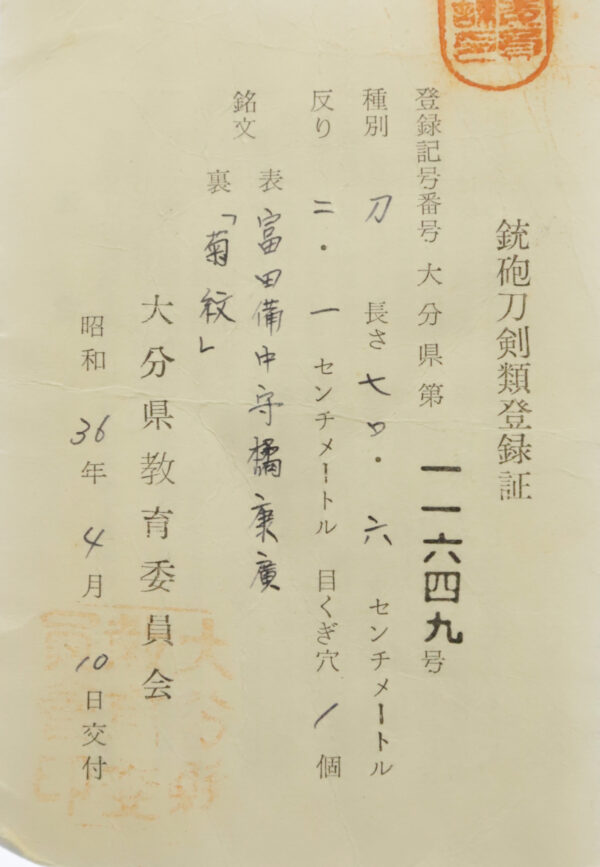 銃砲刀剣類登録証
登録記号番号 大分県第 一一六四九号
種別 刀 長さ 七〇・六 センチメートル
反り 二・一 センチメートル 目くぎ穴 1 個
銘文 表 富田備中守橘康廣
裏 「菊紋」
大分県教育委員会
昭和 36年 4月 10日交付